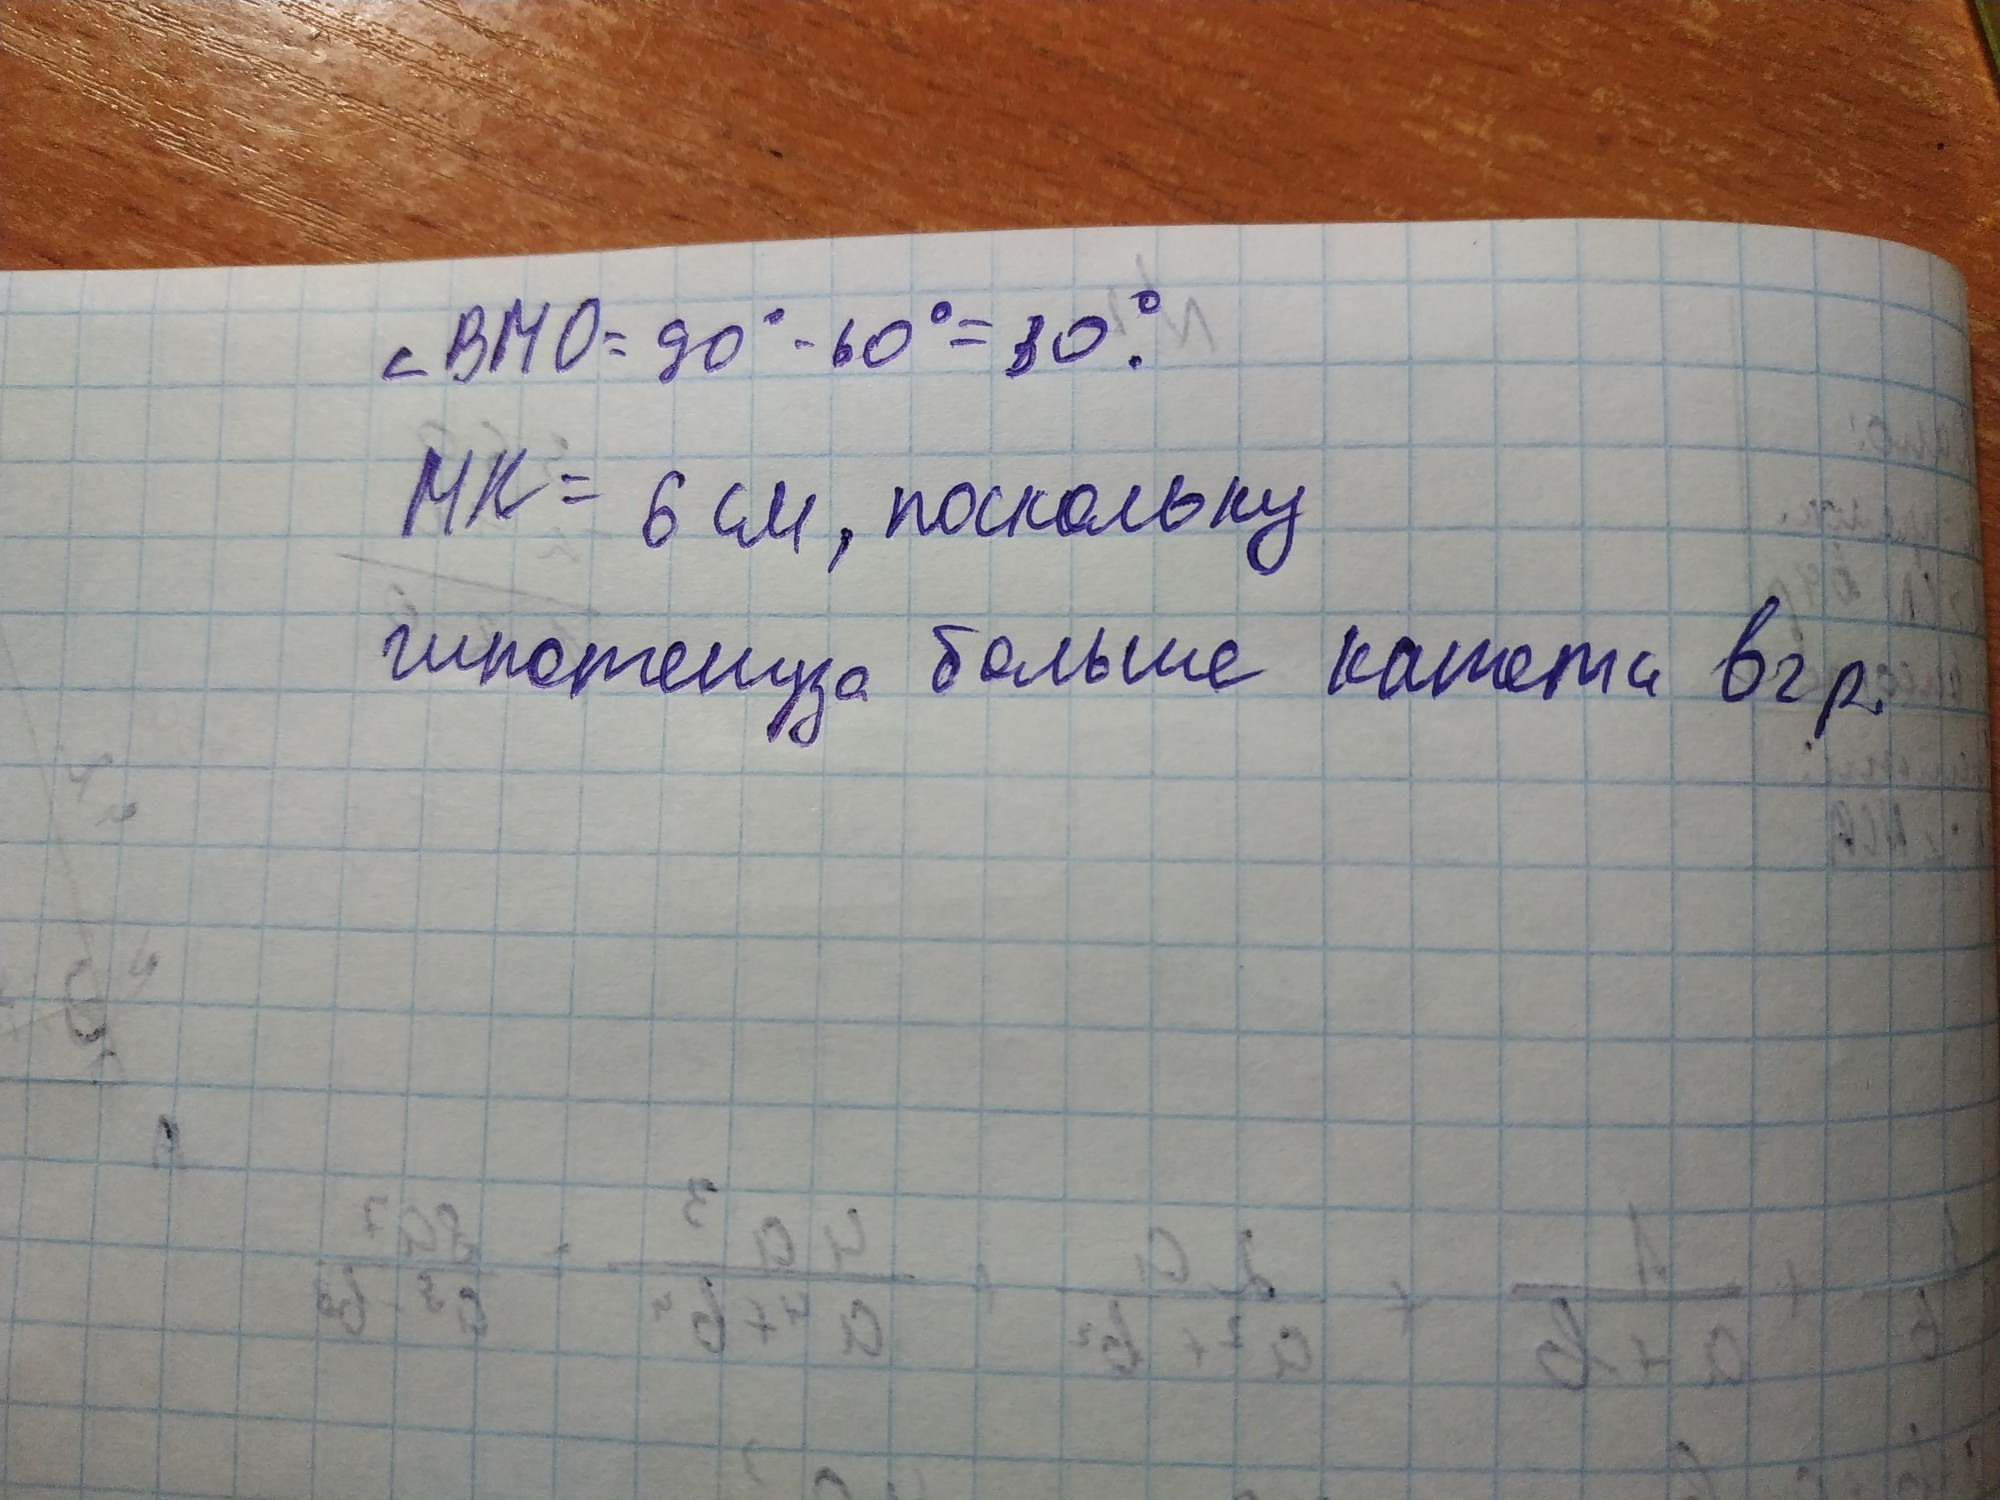 ∠BMO = 90° - 60° = 30°.
MK = 6 см, поскольку
гипотенуза больше катета в 2 р.